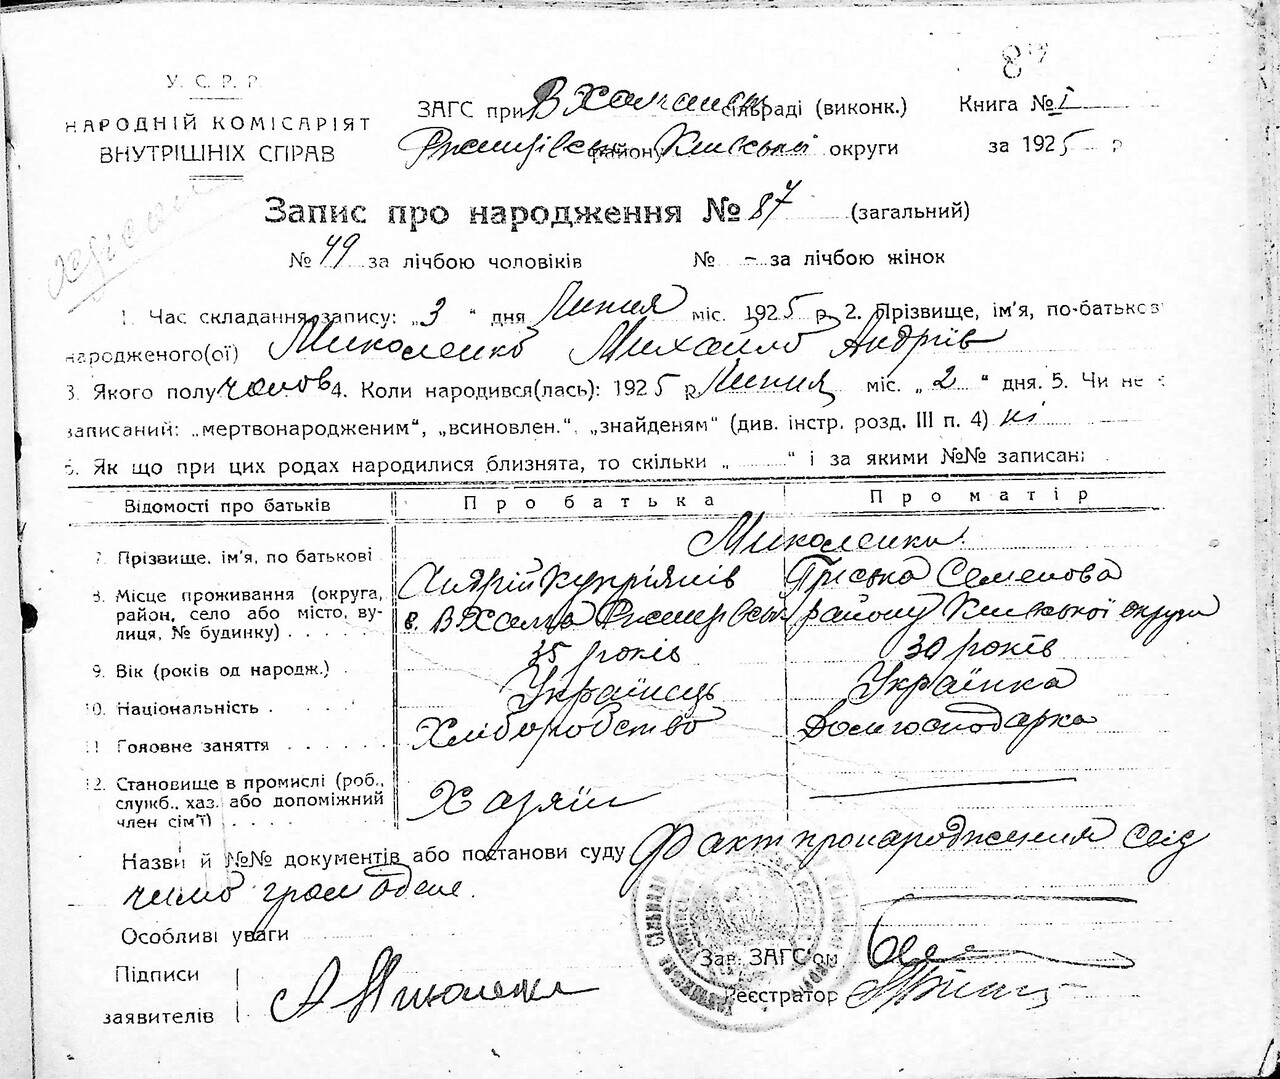 87
У. С. Р. Р.
НАРОДНІЙ КОМІСАРІЯТ
ВНУТРІШНІХ СПРАВ
ЗАГС при В Халчанськ сільраді (виконк.)
Ржищівськ району Київської округи
Книга № І
за 1925 р
Запис про народження № 87 (загальний)
№ 49 за лічбою чоловіків № - за лічбою жінок
1. Час складання запису: „3" дня Липня міс. 1925 р. 2. Прізвище, ім'я, по-батькові
народженого(ої) Миколенко Михайло Андріїв
3. Якого полу чолов 4. Коли народився(лась): 1925 р Липня міс. „2" дня. 5. Чи не є
записаний: „мертвонародженим", „всиновлен.", „знайденям" (див. інстр. розд. III п. 4) ні
6. Як що при цих родах народилися близнята, то скільки „ " і за якими №№ записані
Відомості про батьків Про батька Про матір
7. Прізвище, ім'я, по батькові Миколенки
Андрій Купріянів Пріська Семенова
8. Місце проживання (округа, район, село або місто, вулиця, № будинку) с. В Халча Ржищівськ району Київської округи
9. Вік (років од народж.) 35 років 30 років
10. Національність Українець Українка
11 Головне заняття Хліборобство Домгосподарка
12. Становище в промислі (роб., служб., хаз. або допоміжний член сім'ї) Хазяїн
Назви й №№ документів або постанови суду Факт про народження свід
чимо громадяне.
Особливі уваги
Підписи
заявителів А Миколенко
Зав. ЗАГС'ом
Реєстратор